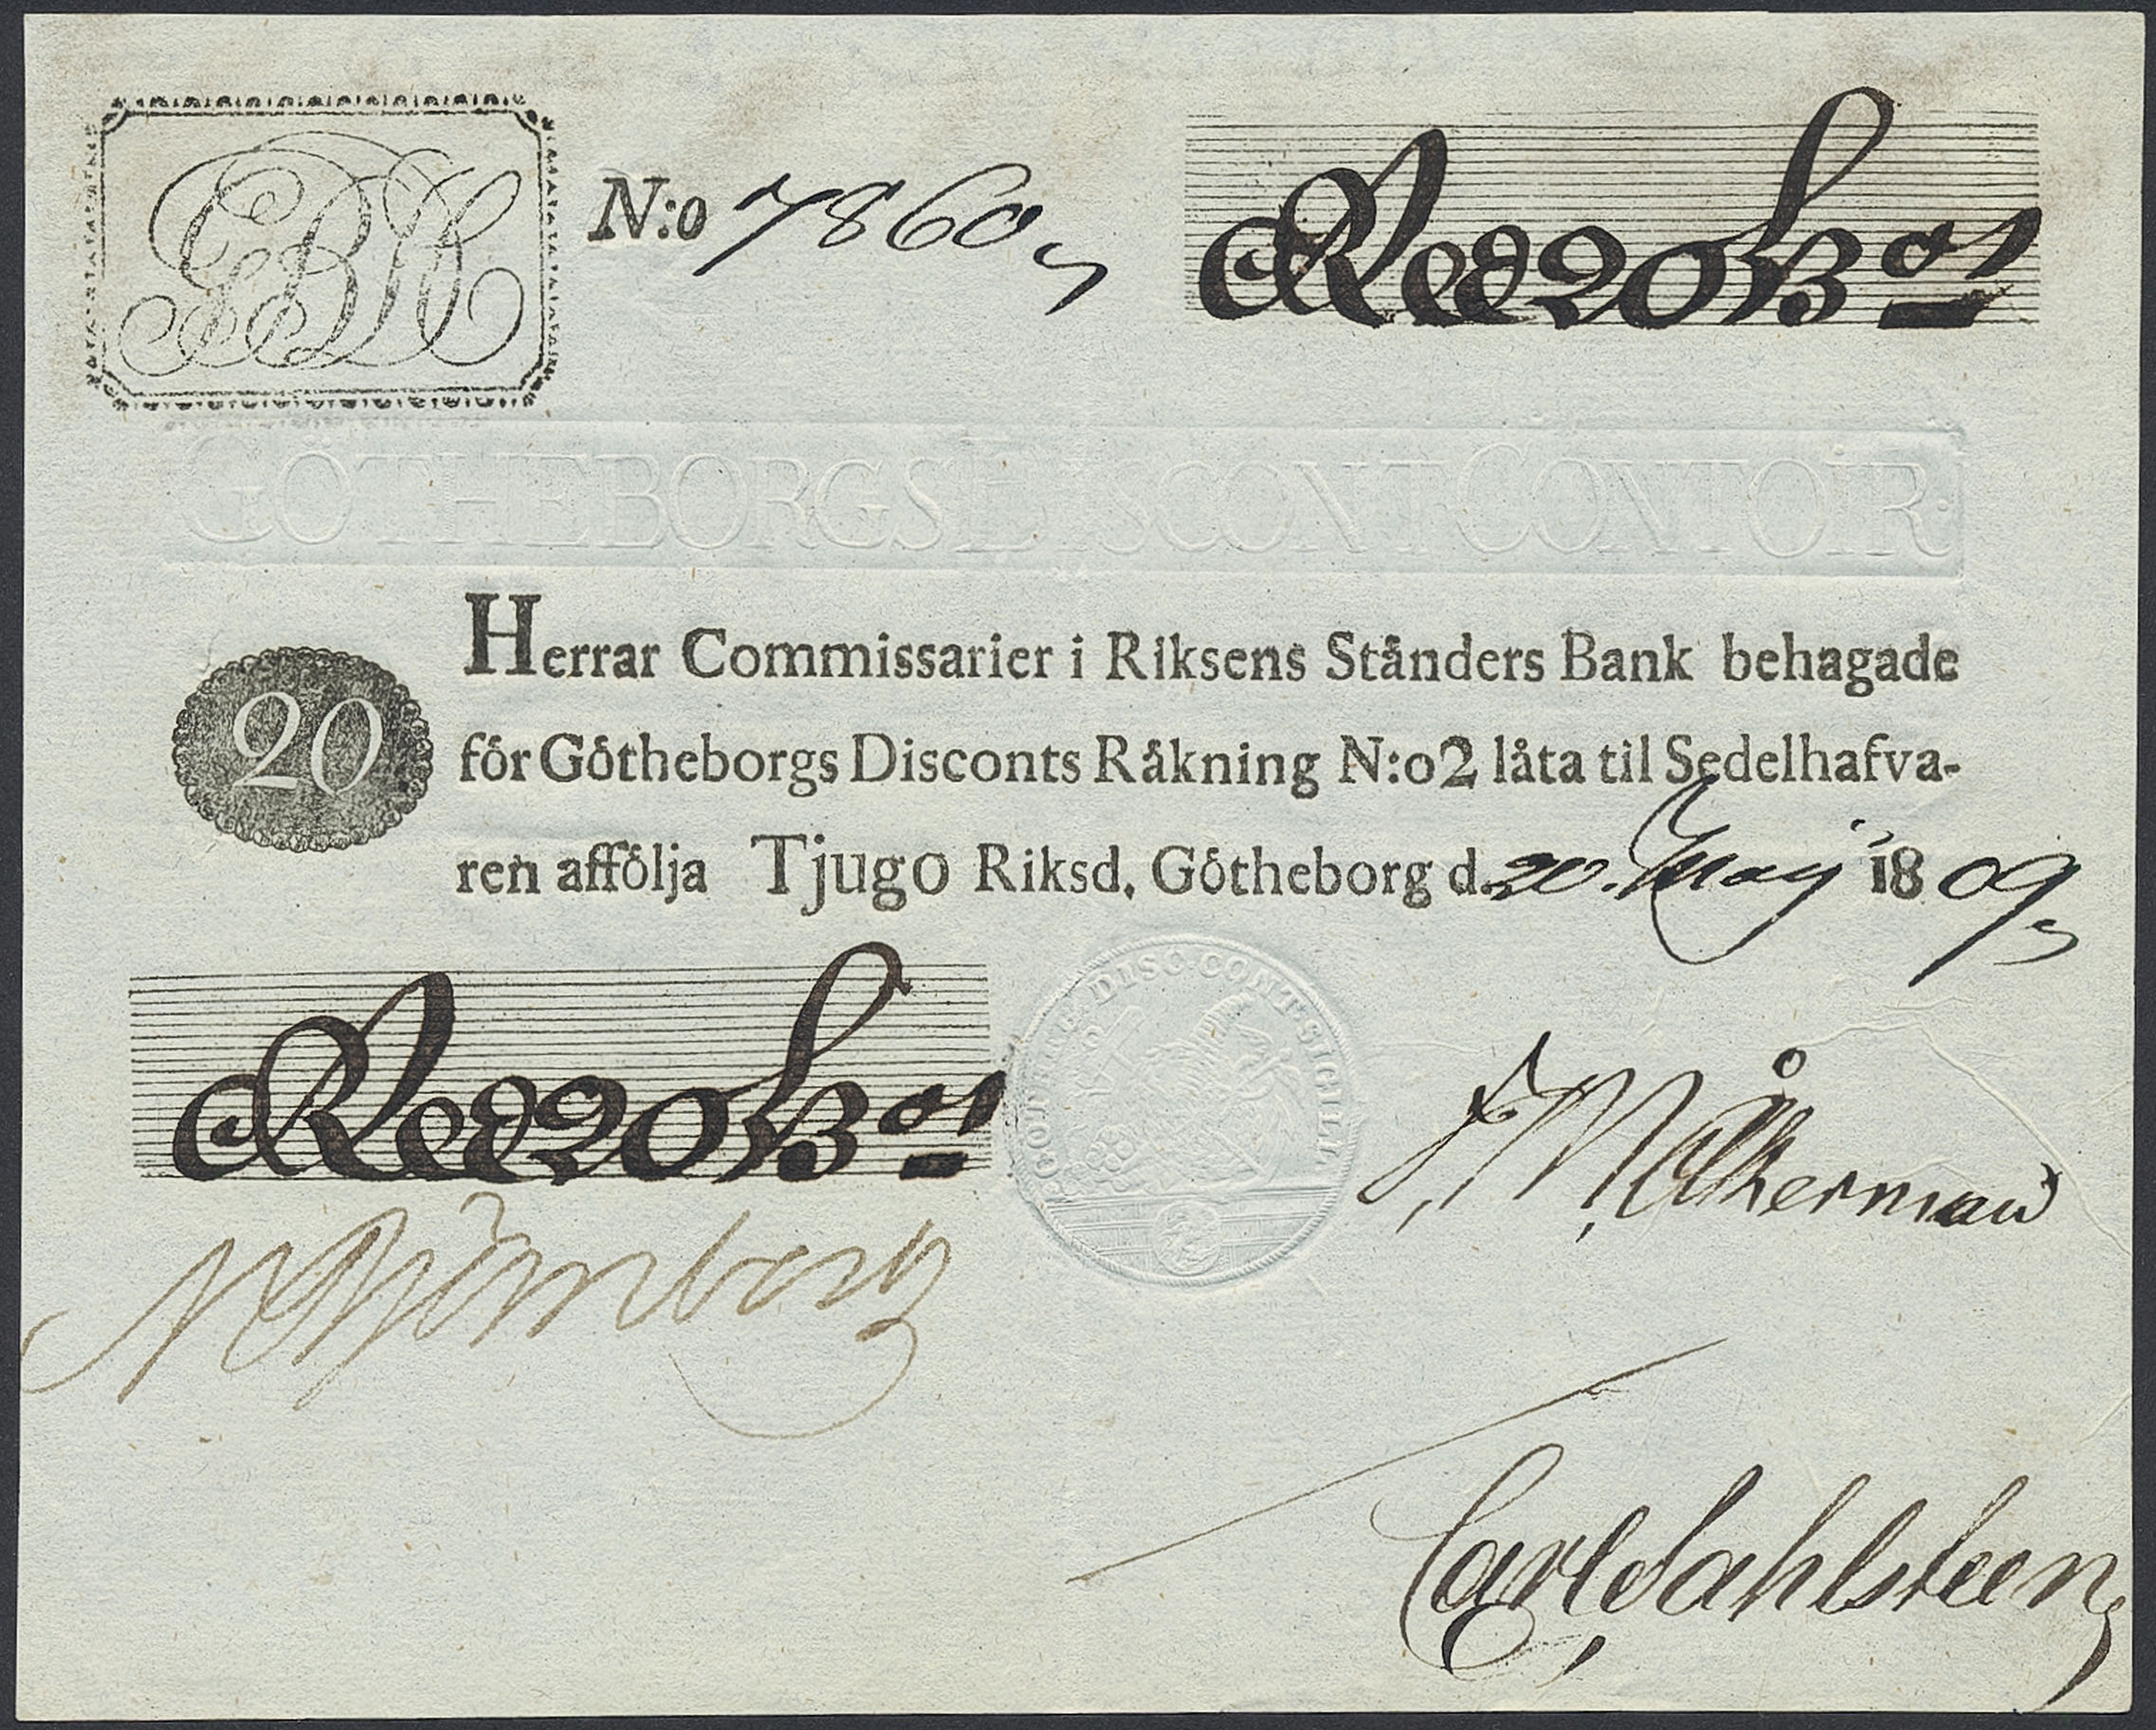 N:o 7860
Rd 20 ß
GÖTHEBORGS DISCONT CONTOIR.
Herrar Commissarier i Riksens Ständers Bank behagade
20
för Götheborgs Disconts Räkning N:o 2 låta til Sedelhafva-
ren affölja Tjugo Riksd. Götheborg d. 20. Maij 1809
Rd 20 ß
DISC CONT SIGILL
Åkerman
Carl Dahlsteen